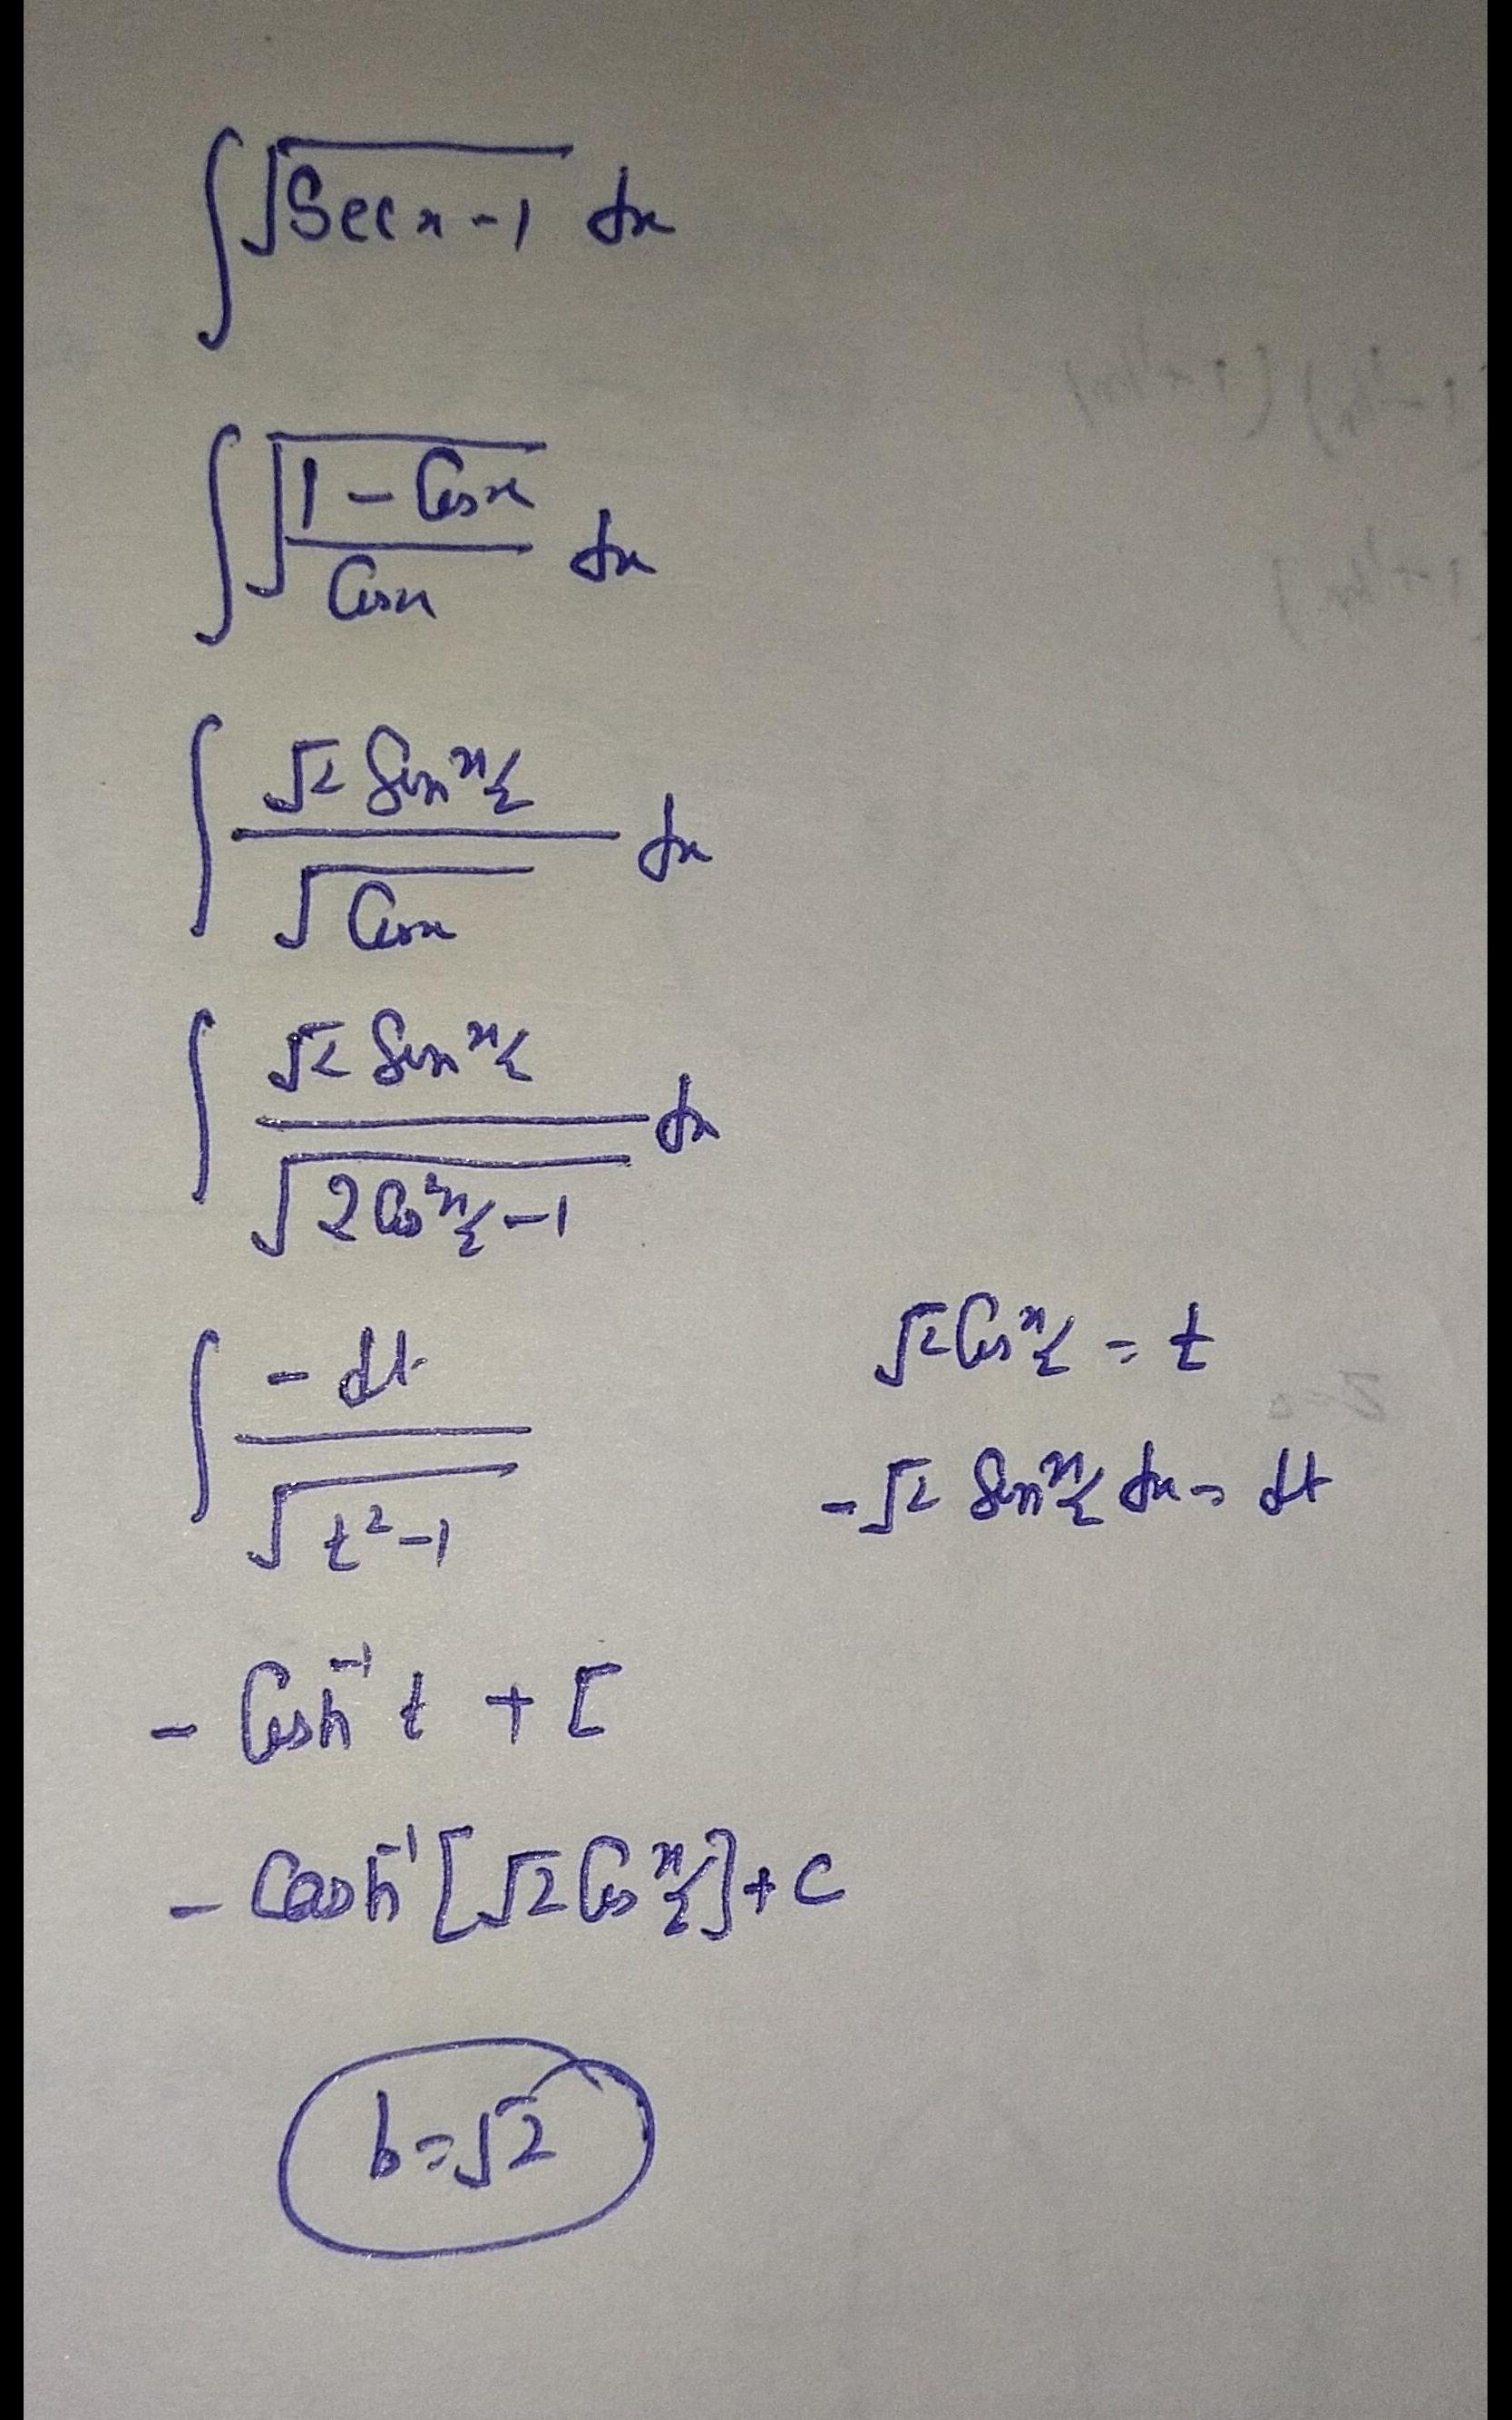 ∫√(Sec x - 1) dx
∫√((1 - Cos x)/(Cos x)) dx
∫(√2 Sin x/2)/(√(Cos x)) dx
∫(√2 Sin x/2)/(√(2Cos² x/2 - 1)) dx
∫(-dt)/(√(t² - 1))
√2 Cos x/2 = t
-√2 Sin x/2 dx = dt
- Cosh⁻¹ t + C
- Cosh⁻¹[√2 Cos x/2] + C
b = √2